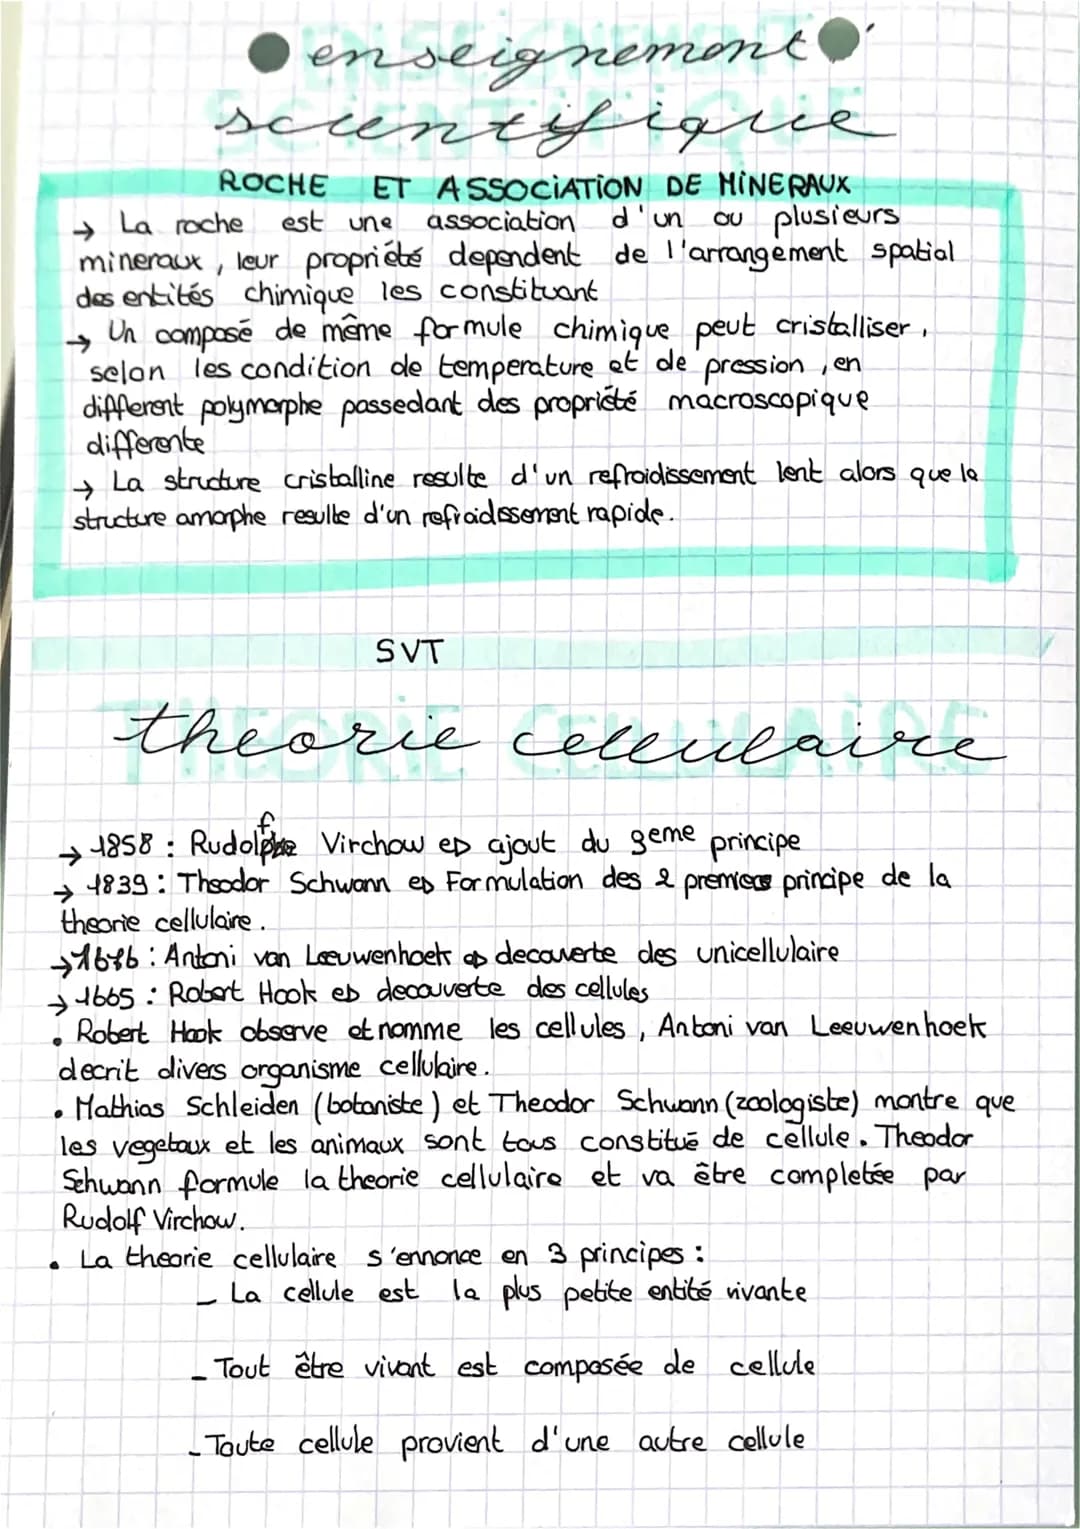 enseignement
scientifique
ROCHE ET ASSOCIATION DE MINERAUX
→ La roche est une association d'un ou plusieurs
mineraux, leur propriété dependent de l'arrangement spatial
des entités chimique les constituant
→ Un composé de même formule chimique peut cristalliser,
selon les condition de temperature et de pression, en
different polymorphe possedant des propriété macroscopique
differente
→ La structure cristalline resulte d'un refroidissement lent alors que la
structure amorphe resulte d'un refroidissement rapide.
SVT
theorie cellulaire
→ 1858 : Rudolf Virchow ajout du 3eme principe
→ 1839 : Theodor Schwann Formulation des 2 premiers principe de la
theorie cellulaire.
→ : Antoni van Leeuwenhoek decouverte des unicellulaire
→ 1665 : Robert Hook decouverte des cellules
• Robert Hook observe et nomme les cellules, Antoni van Leeuwenhoek
decrit divers organisme cellulaire.
• Mathias Schleiden (botaniste) et Theodor Schwann (zoologiste) montre que
les vegetaux et les animaux sont tous constitué de cellule. Theodor
Schwann formule la theorie cellulaire et va être completée par
Rudolf Virchow.
• La theorie cellulaire s'ennonce en 3 principes :
- La cellule est la plus petite entité vivante
- Tout être vivant est composée de cellule
- Toute cellule provient d'une autre cellule